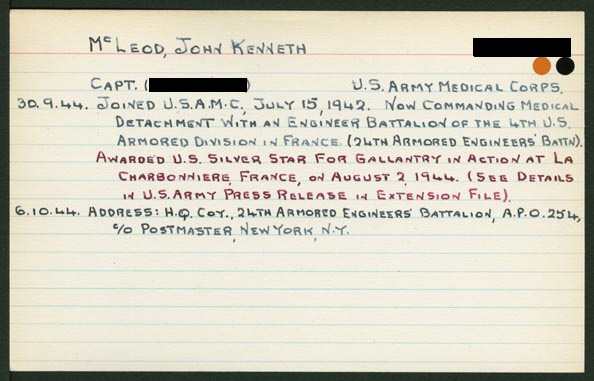 McLeod, John Kenneth
Capt. ( ) U.S. Army Medical Corps.
30.9.44. Joined U.S.A.M.C., July 15, 1942. Now Commanding Medical
Detachment with an Engineer Battalion of the 4th U.S.
Armored Division in France. (24th Armored Engineers' Battn).
Awarded U.S. Silver Star for Gallantry in Action at La
Charbonniere, France, on August 2, 1944. (See Details
in U.S. Army Press Release in Extension File).
6.10.44. Address: H.Q. Coy., 24th Armored Engineers' Battalion, A.P.O. 254,
c/o Postmaster, New York, N.Y.